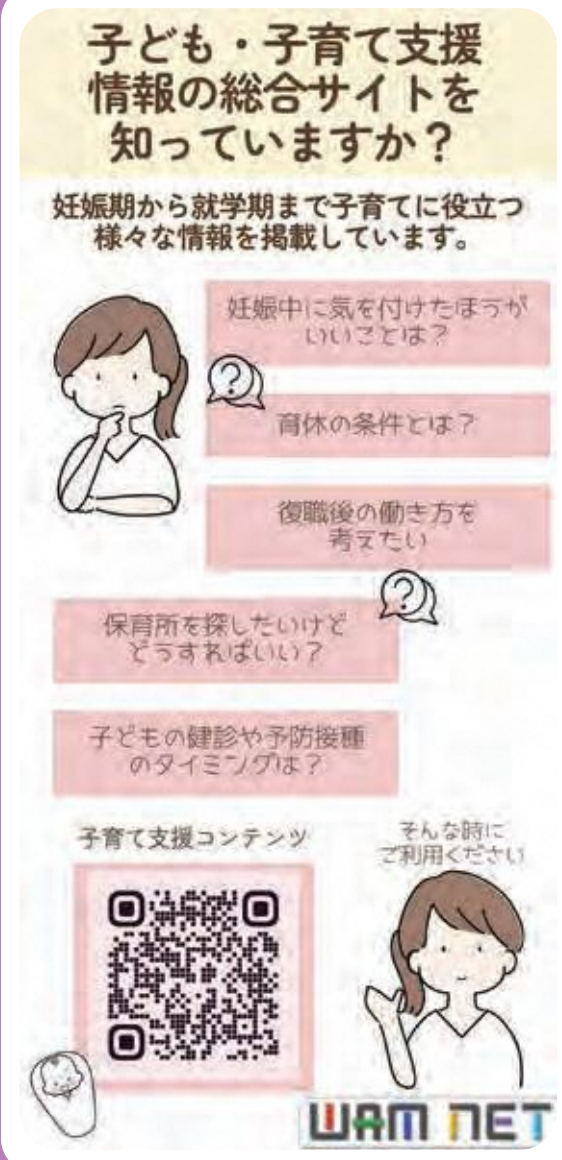 子ども・子育て支援
情報の総合サイトを
知っていますか？
妊娠期から就学期まで子育てに役立つ
様々な情報を掲載しています。
妊娠中に気を付けたほうが
いいことは？
?
育休の条件とは？
復職後の働き方を
考えたい
?
保育所を探したいけど
どうすればいい？
子どもの健診や予防接種
のタイミングは？
子育て支援コンテンツ
そんな時に
ご利用ください
WAM NET